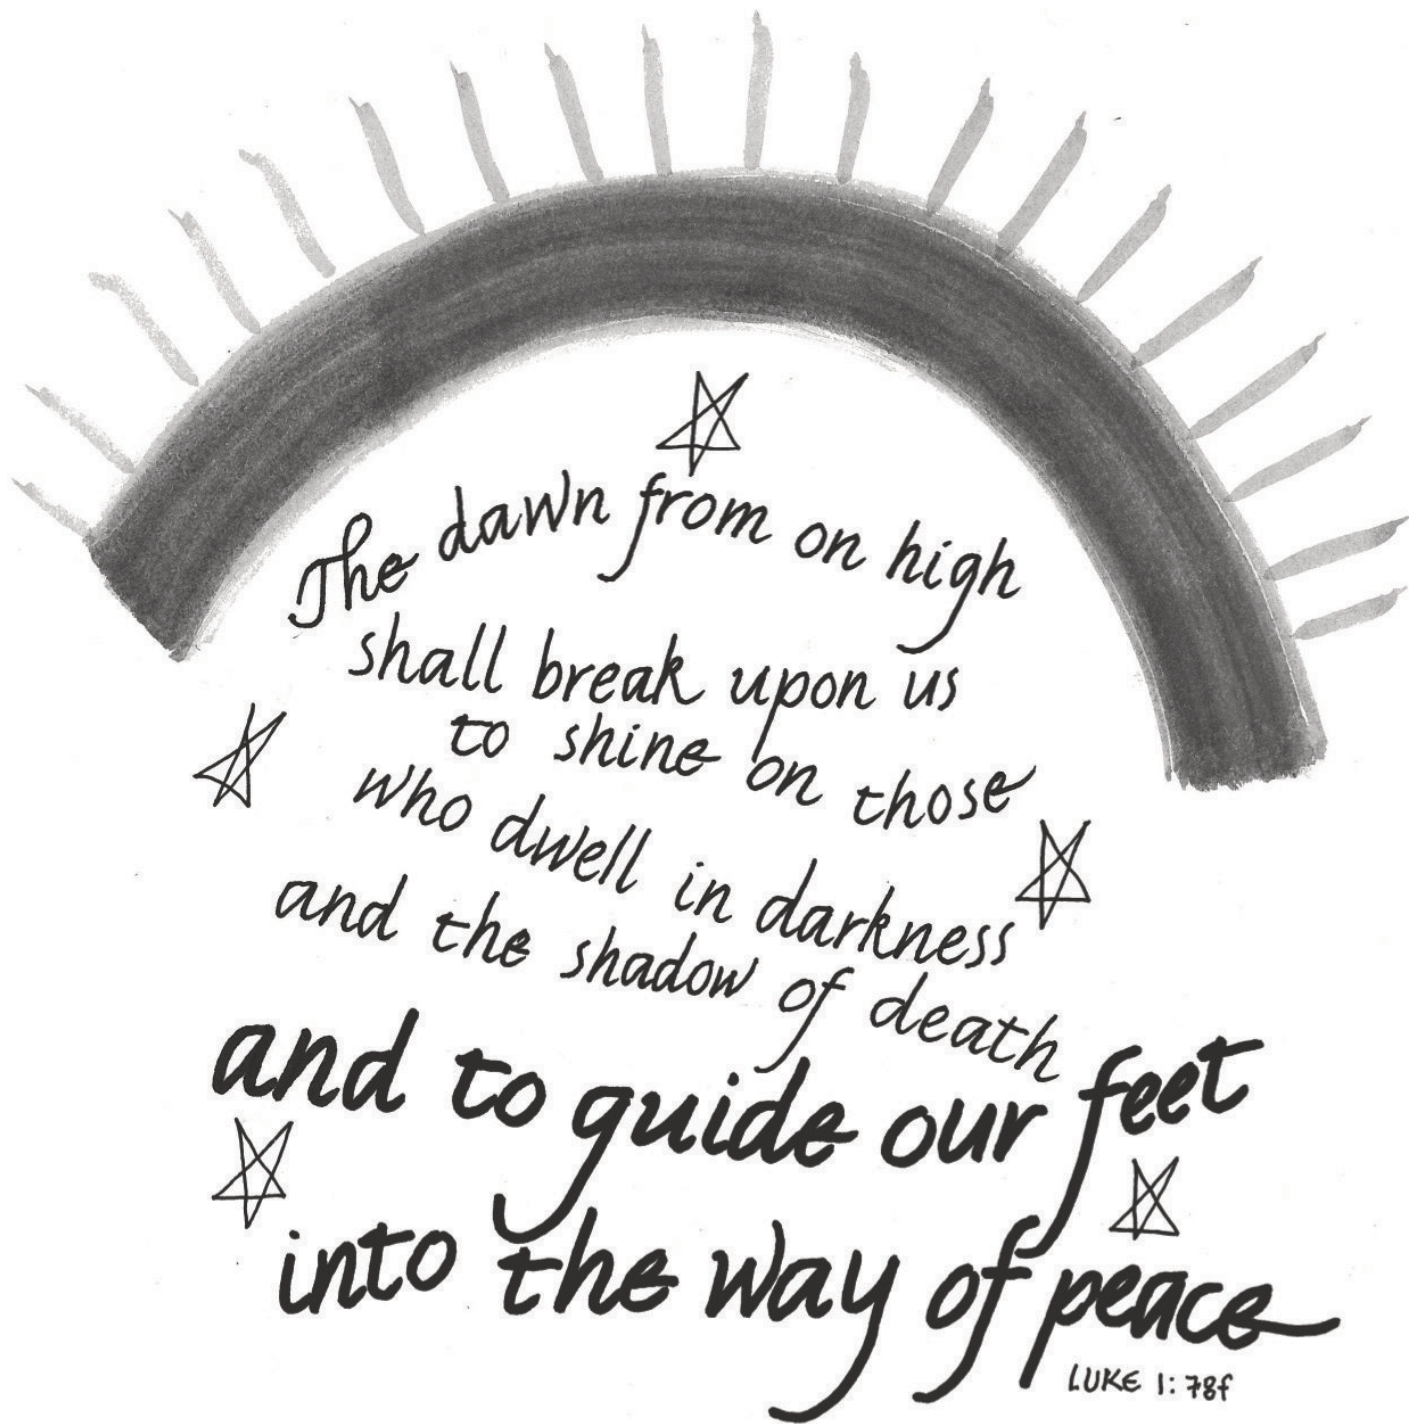 The dawn from on high
shall break upon us
to shine on those
who dwell in darkness
and the shadow of death
and to guide our feet
into the way of peace
LUKE 1:78f